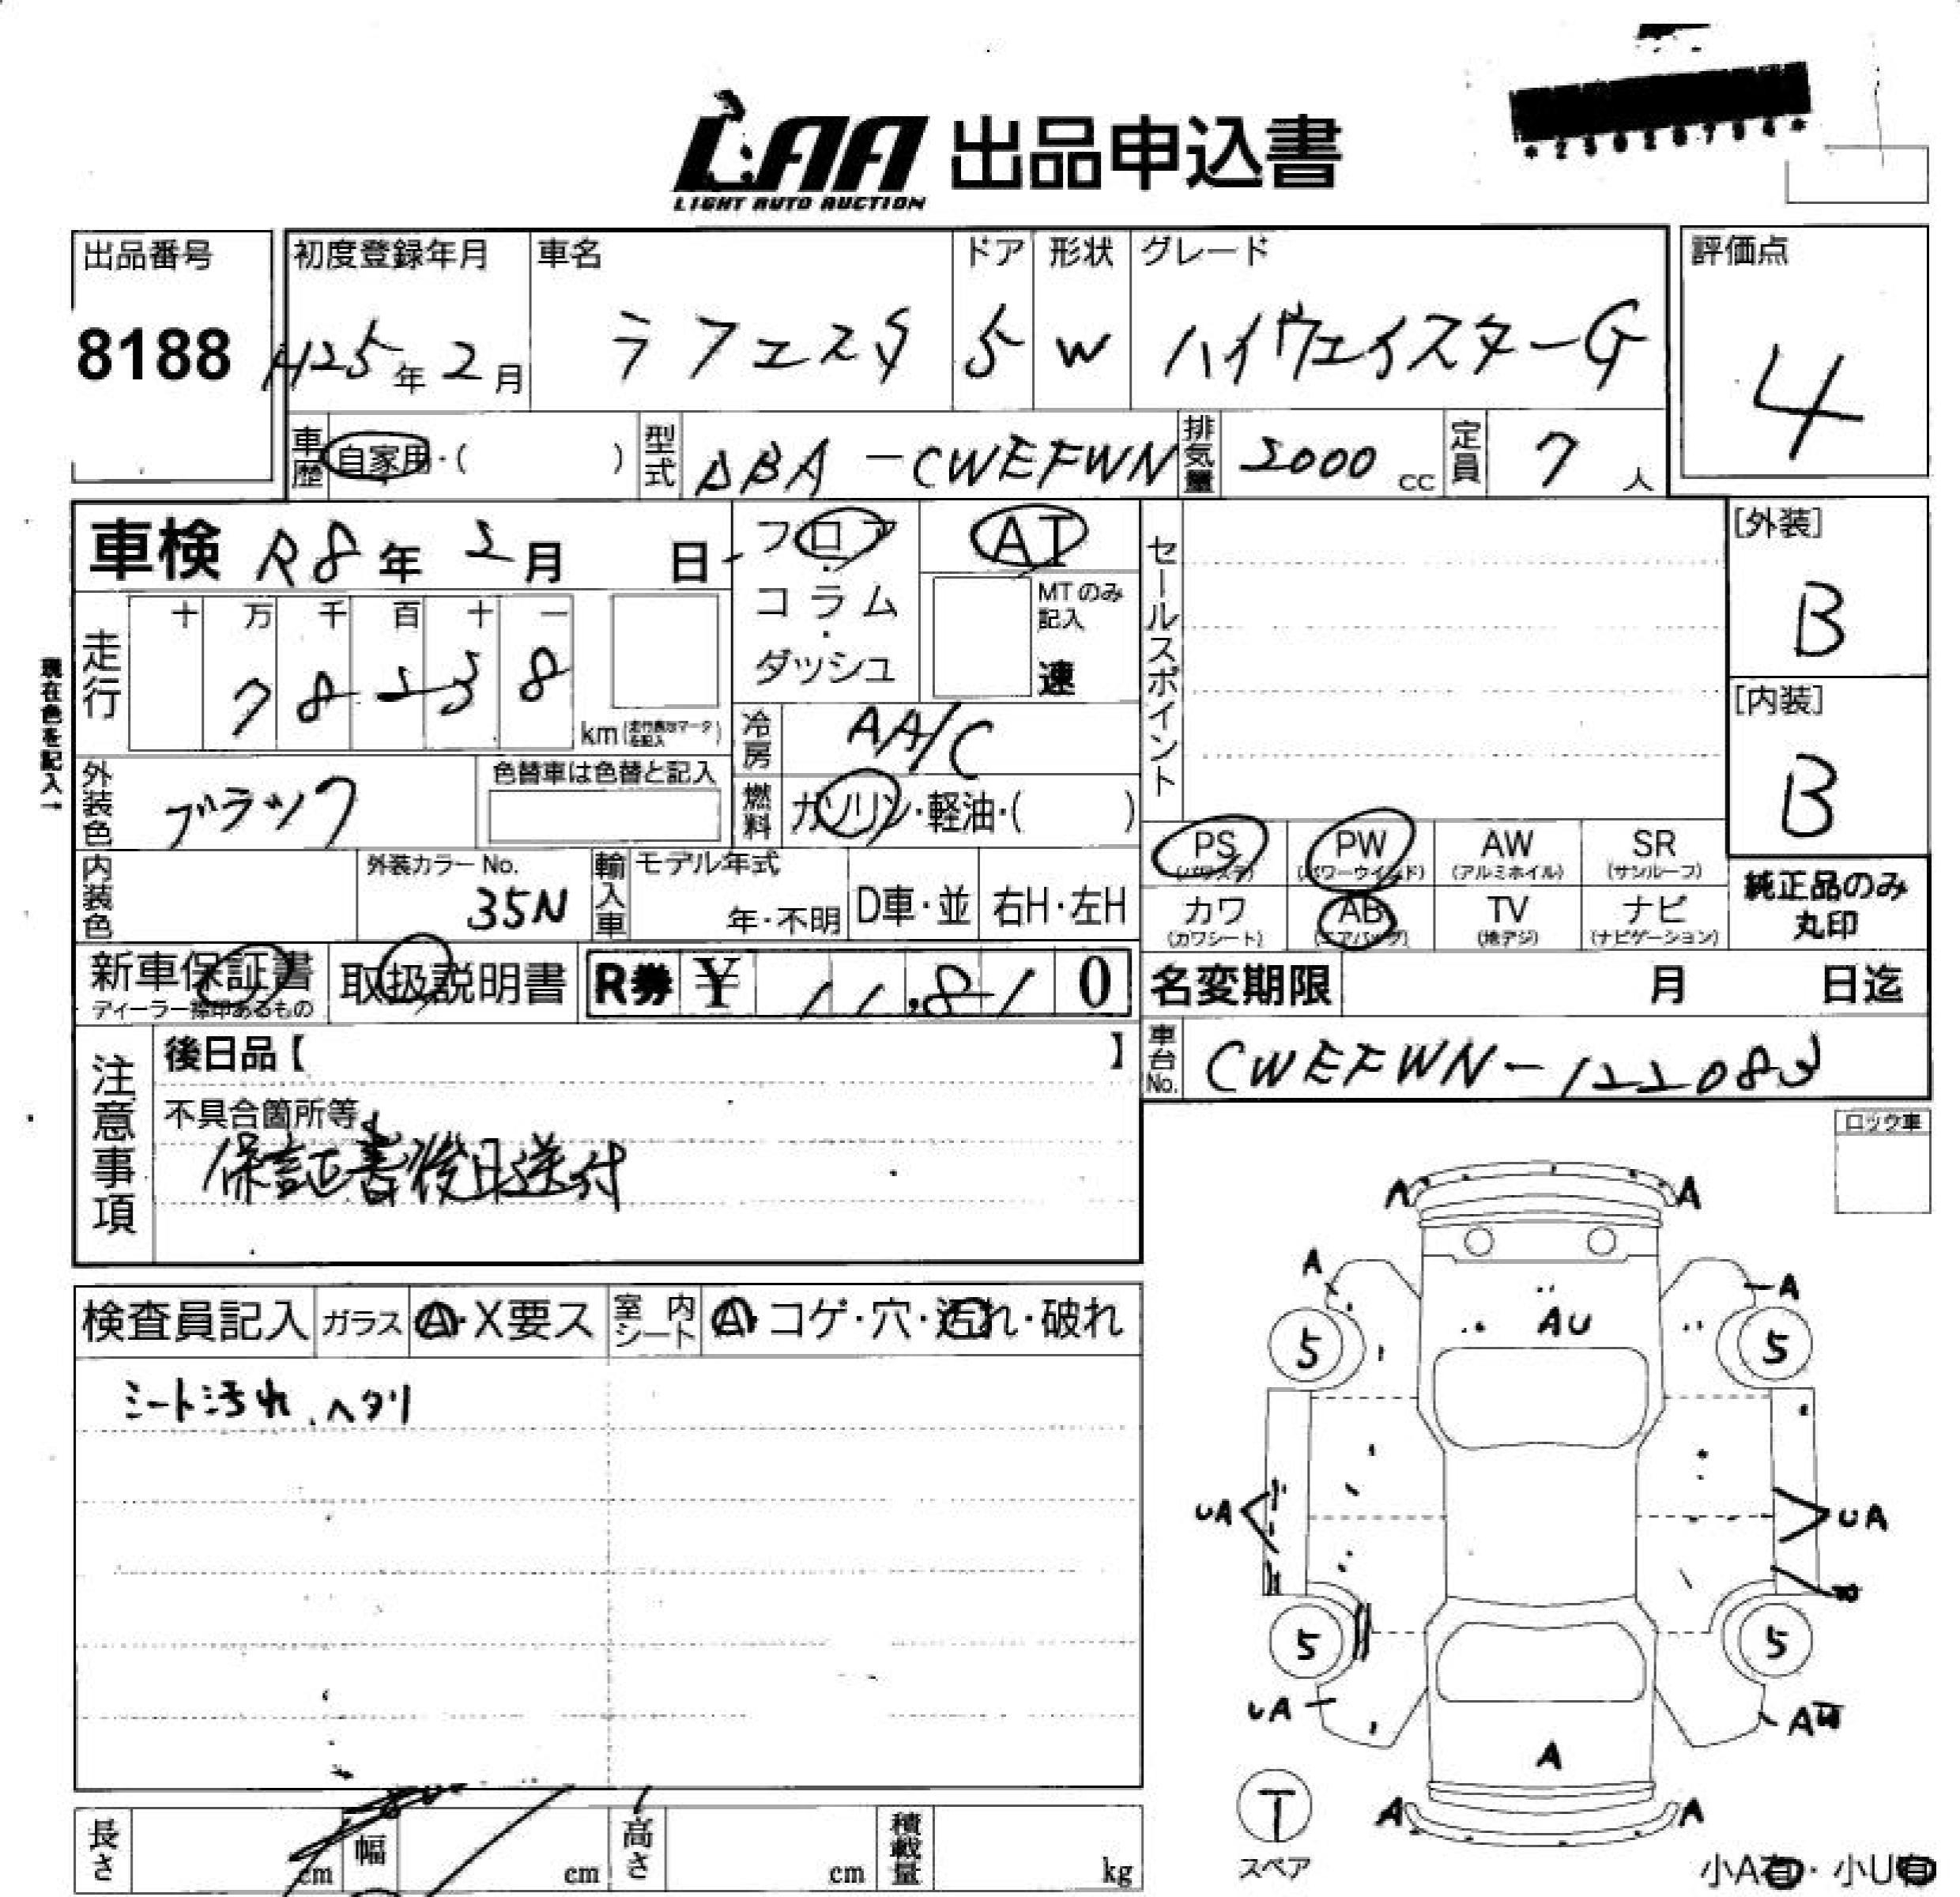 LAA 出品申込書
LIGHT AUTO AUCTION
出品番号
8188
初度登録年月
H25年2月
車名
ラフェスタ
ドア
5
形状
W
グレード
ハイウェイスターG
評価点
4
車歴 自家用・( )
型式 DBA-CWEFWN
排気量 2000 cc
定員 7 人
車検 R8年2月 日
フロア・コラム・ダッシュ
AT
MTのみ記入
速
セールスポイント
[外装]
B
[内装]
B
現在色を記入→
走行
十 万 千 百 十 一
7 8 2 3 8
km
冷房 AA/C
燃料 ガソリン・軽油・( )
外装色 ブラック
色替車は色替と記入
内装色
外装カラーNo.
35N
輸入車 モデル年式
年・不明
D車・並
右H・左H
PS
(パワステ)
PW
(パワーウインド)
AW
(アルミホイル)
SR
(サンルーフ)
カワ
(カワシート)
AB
(エアバッグ)
TV
(地デジ)
ナビ
(ナビゲーション)
純正品のみ
丸印
新車保証書
ディーラー捺印あるもの
取扱説明書
R券 ¥ 11,810
名変期限 月 日迄
車台No. CWEFWN-122083
注意事項
後日品【 】
不具合箇所等
保証書後日送付
ロック車
検査員記入
ガラス A・X要ス
室内シート A・コゲ・穴・汚れ・破れ
シート汚れ、ヘタリ
A A
A A
AU
5 5
UA UA
5 5
UA
A
A A
T
スペア
小A有・小U有
長さ cm
幅 cm
高さ cm
積載量 kg